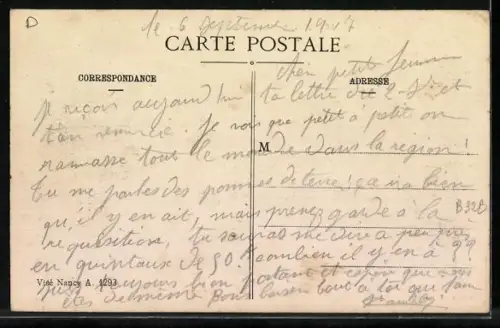 D
le 6 septembre 1917
CARTE POSTALE
CORRESPONDANCE
ADRESSE
Mon petit
ta lettre du 2 et
je reçois aujourd'hui
t'en remercie. Je vois que petit à petit on
M
ramasse tout le monde dans la région!
Tu me parles des pommes de terre! ça ira bien
qu'il y en ait, mais prenez garde à la
B32B
réquisition, tu sauras me dire à peu près
en quintaux de 50 k combien il y en a??
Visé Nancy A. 1293
suis toujours bien portant et que vous
êtes de même. Bon baiser tout à toi qui t'aime